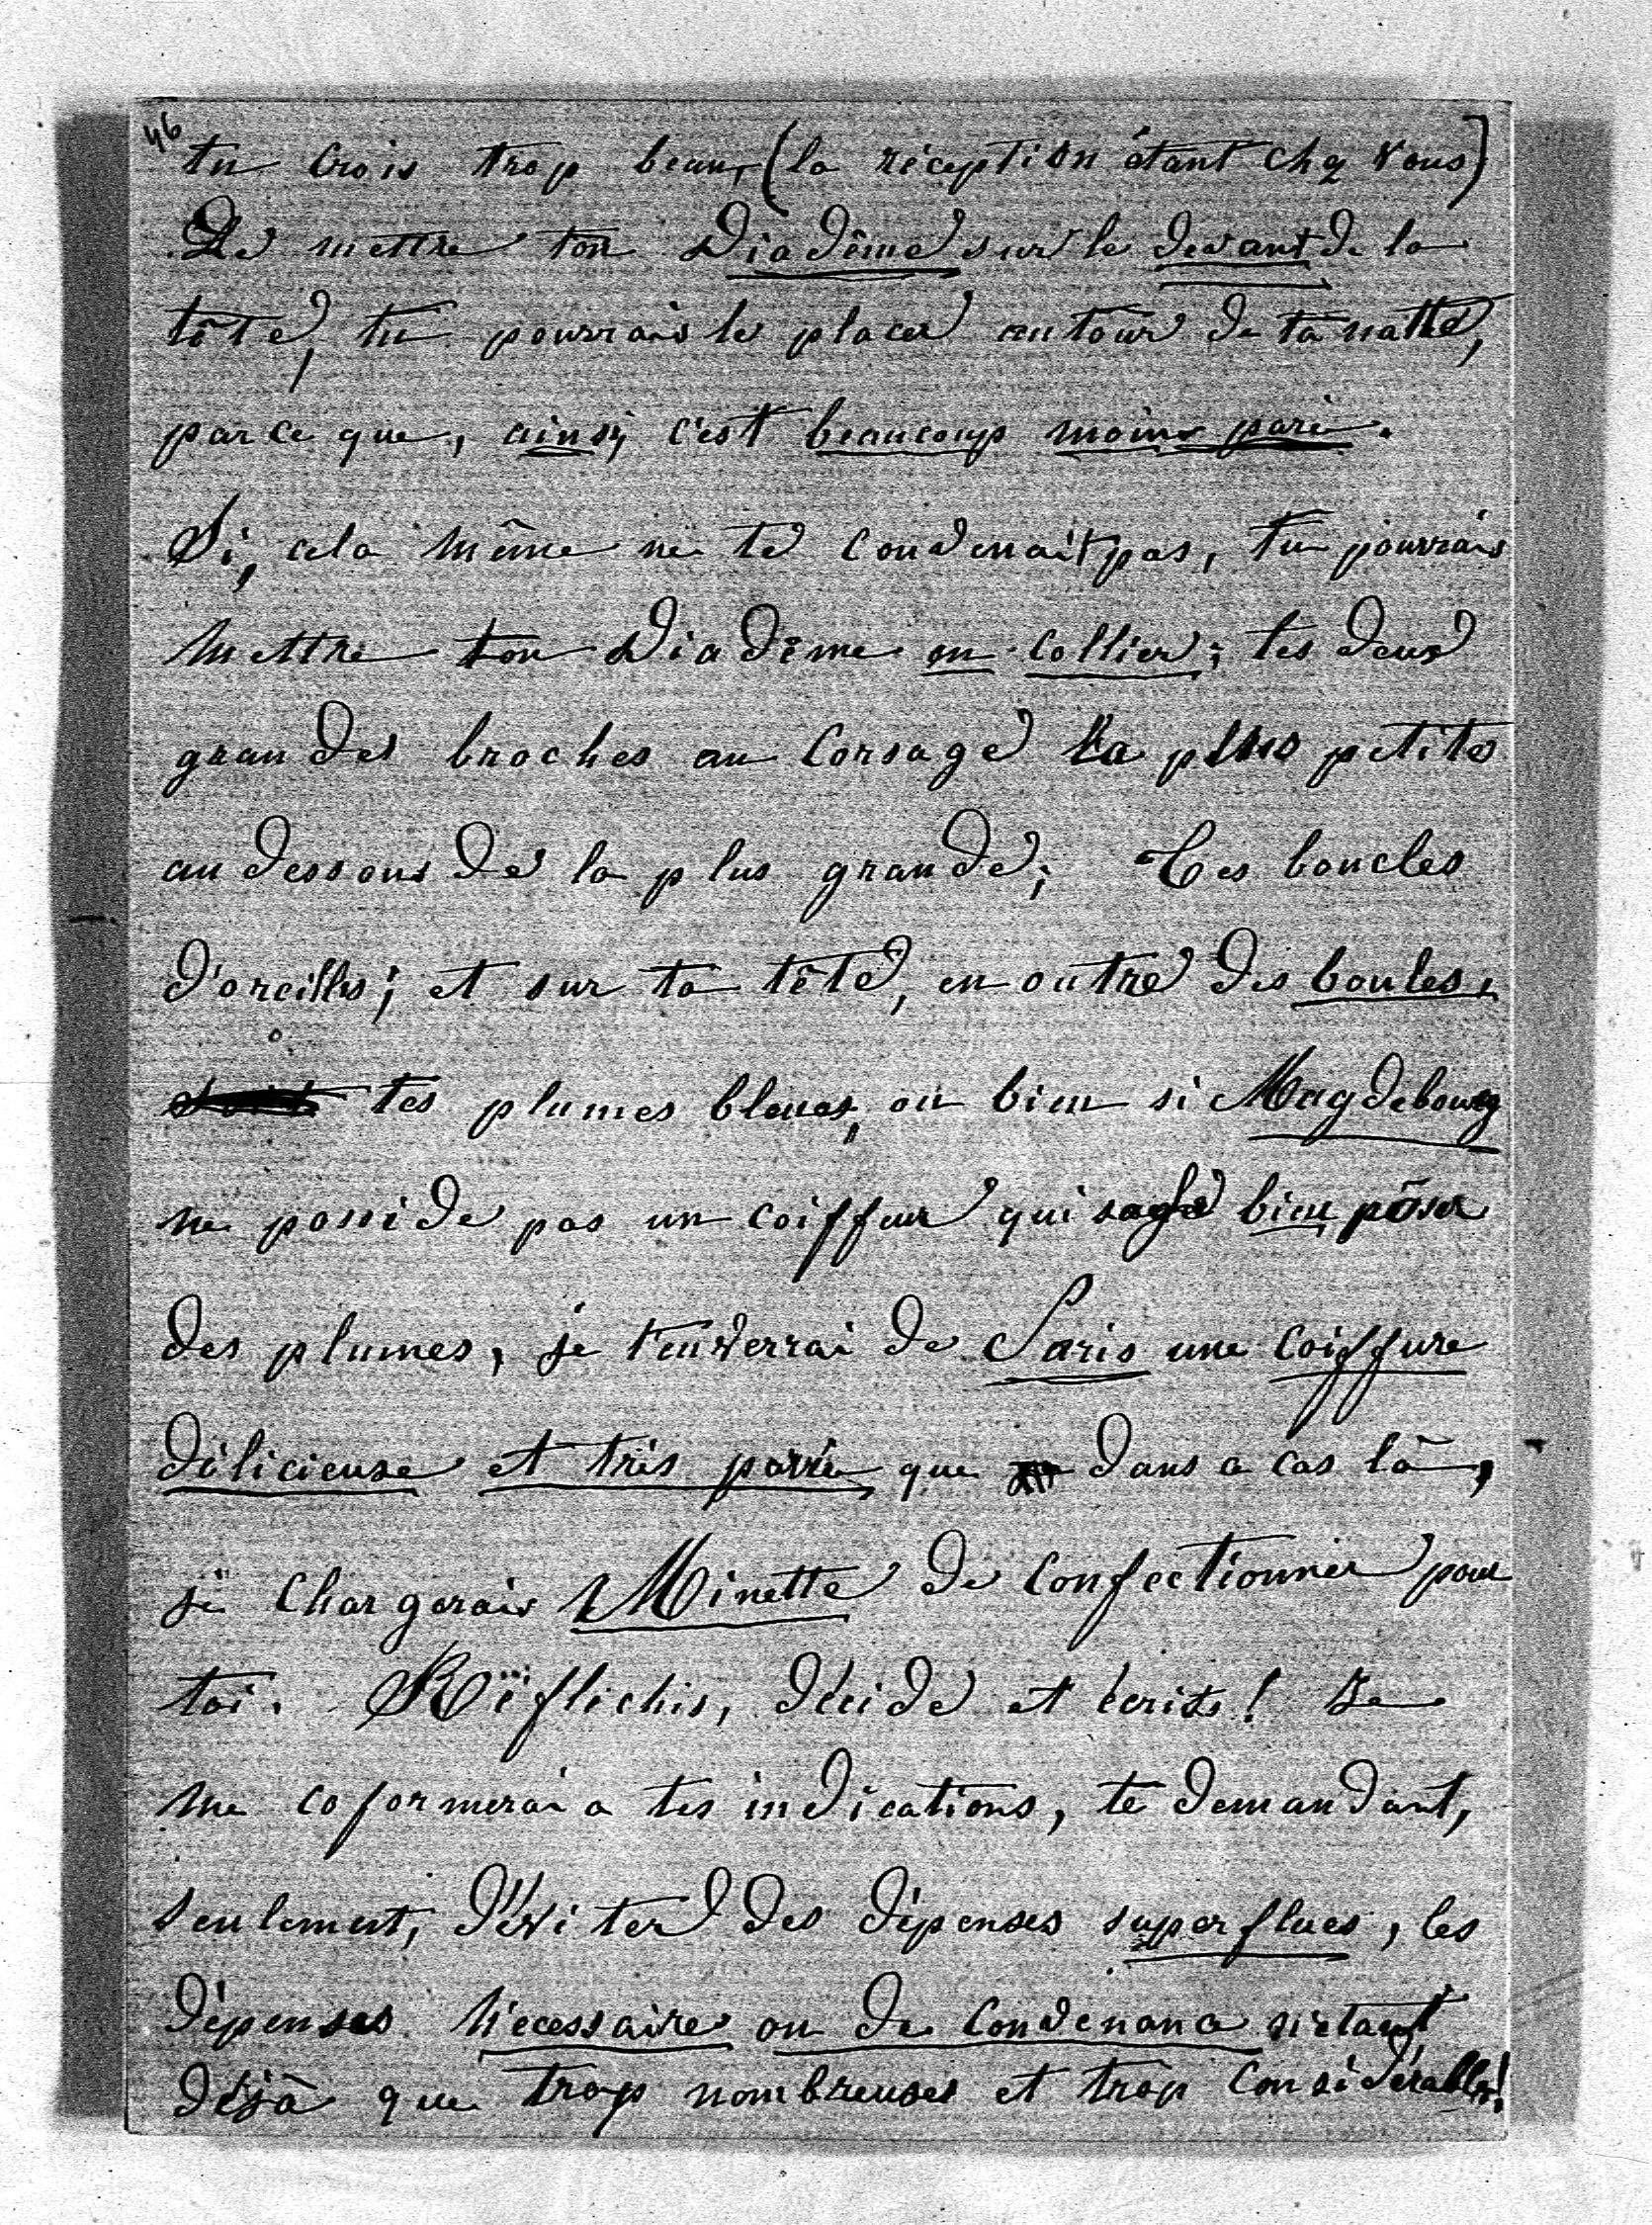 46
tu crois trop beau, (la réception étant chez vous)
de mettre ton Diadême sur le devant de la
tête, tu pourrais le placer autour de ta natte,
parce que, ainsi, c'est beaucoup moins paré.
Si, cela même ne te convenait pas, tu pourrais
mettre ton Diadême en collier; tes deux
grandes broches au corsage la plus petite
au dessous de la plus grande; Tes boucles
d'oreilles; et sur ta tête, en outre des boules,
tes plumes bleues, ou bien si Magdebourg
ne possède pas un coiffeur qui sache bien poser
des plumes, je t'enverrai de Paris une coiffure
délicieuse et très parée que dans ce cas là,
je chargerais Minette de confectionner pour
toi. Réfléchis, décide et écris! Je
me coformerai a tes indications, te demandant,
seulement, d'éviter des dépenses superflues, les
dépenses nécessaire ou de convenance n'étant
déjà que trop nombreuses et trop considérables!